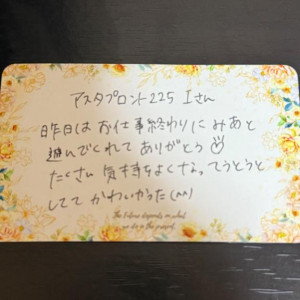 アスタプロント225 Iさん
昨日は お仕事終わりに みあと
遊んでくれて ありがとう
たくさん 気持ちよくなって うとうと
してて かわいかった(^^)
The Future depends on what
we do in the present.